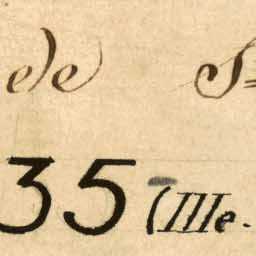 de S
35 (IIIe.